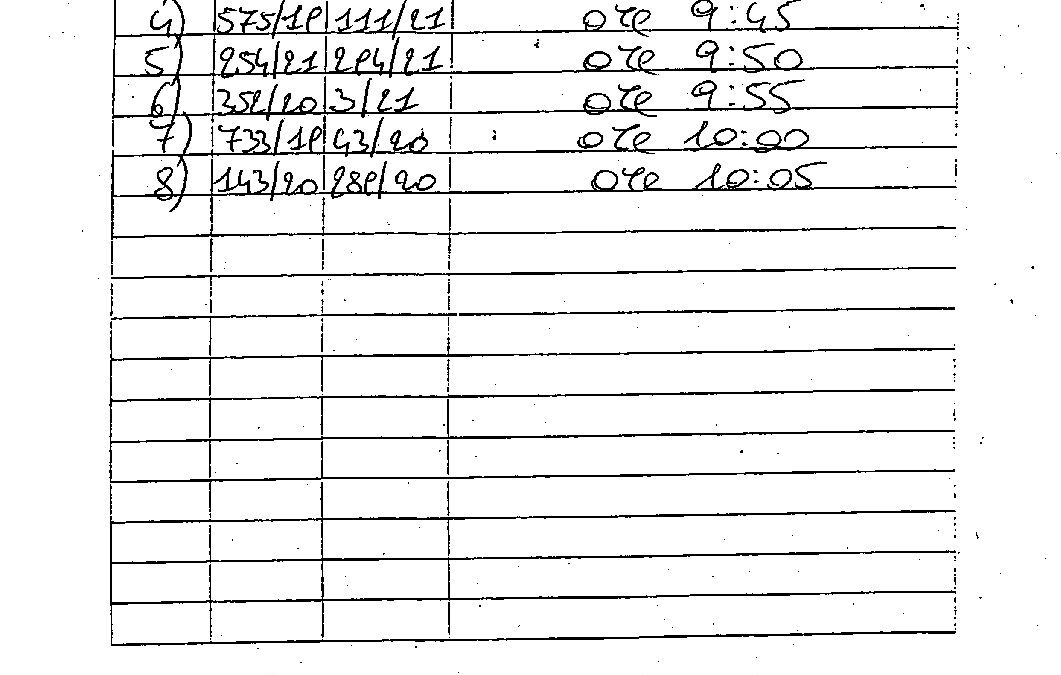 4) 575/19 111/21 ore 9:45
5) 254/21 294/21 ore 9:50
6) 352/20 3/21 ore 9:55
7) 733/19 43/20 ore 10:00
8) 143/20 289/20 ore 10:05